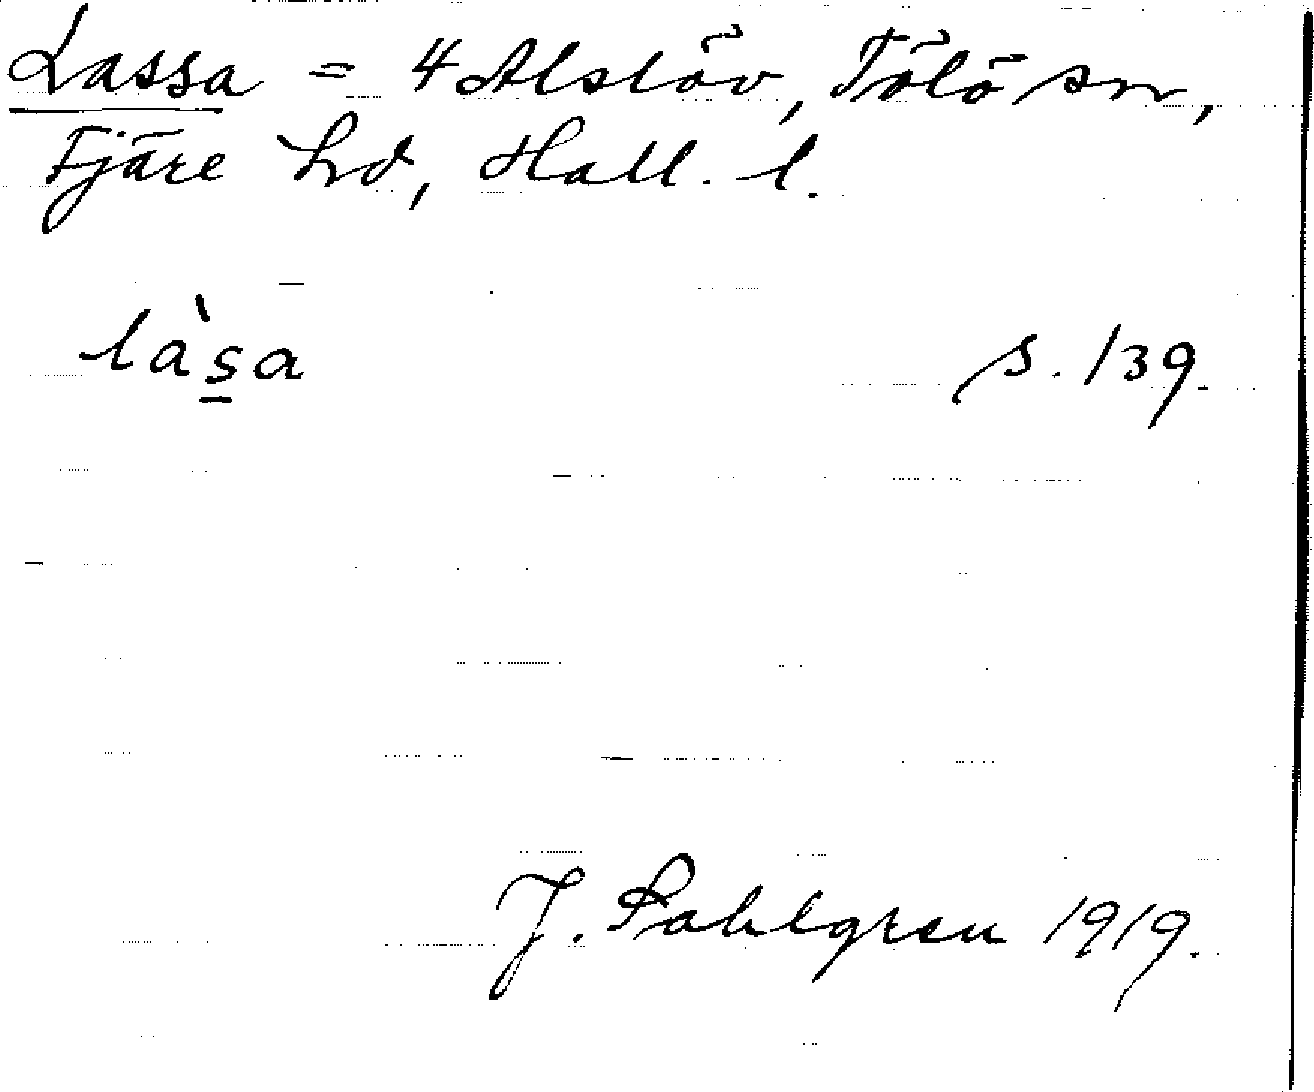 Lassa = 4 Alslöv, Tölö sn,
Fjäre hd, Hall. l.
làs̱a s. 139.
J. Sahlgren 1919.